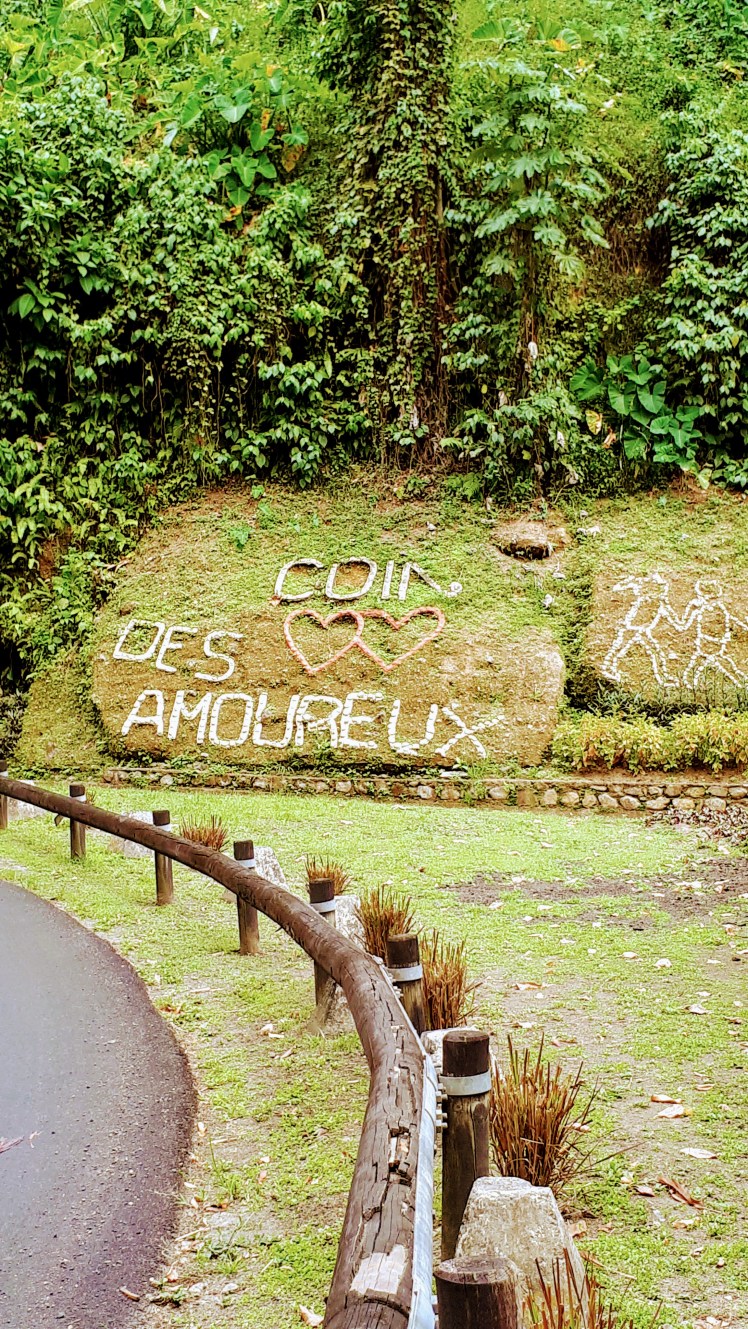 COIN
DES
AMOUREUX